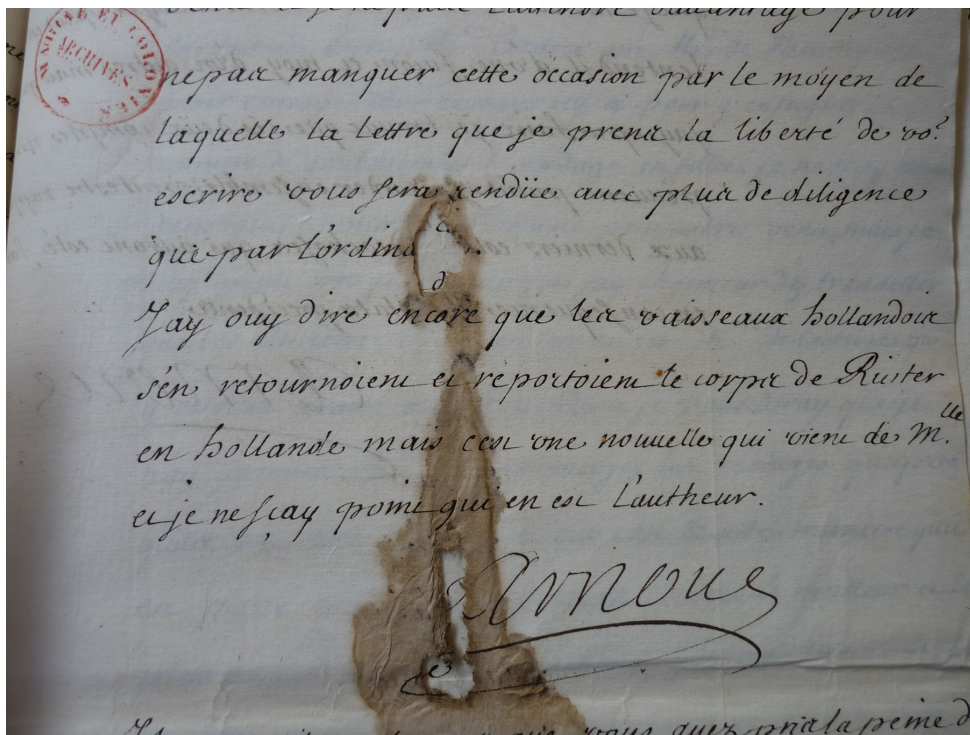 davantage pour
ne pas manquer cette occasion par le moyen de
laquelle la lettre que je prens la liberté de vo.s
escrire vous sera rendüe avec plus de diligence
que par l'ordina
J'ay ouy dire encore que les vaisseaux hollandois
s'en retournoient et reportoient le corps de Ruiter
en hollande mais c'est une nouvelle qui vient de M.lle
et je ne sçay point qui en est l'autheur.
Arnoul
vous avez pris la peine d
ARCHIVES